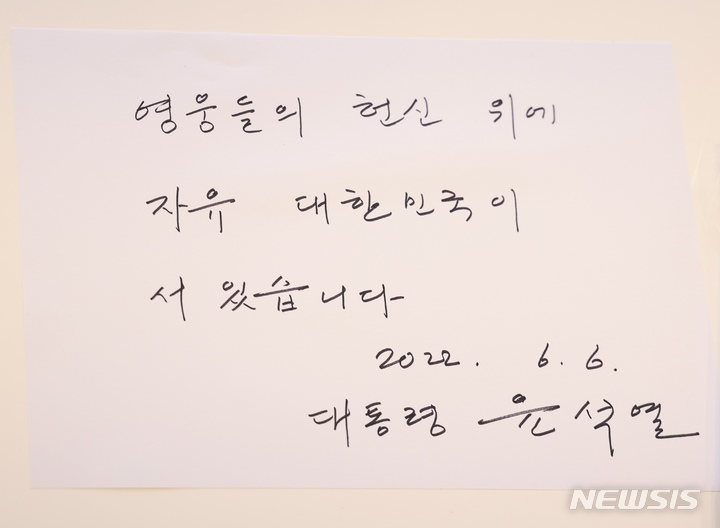 영웅들의 헌신 위에
자유 대한민국이
서 있습니다
2022. 6. 6.
대통령 윤석열
NEWSIS